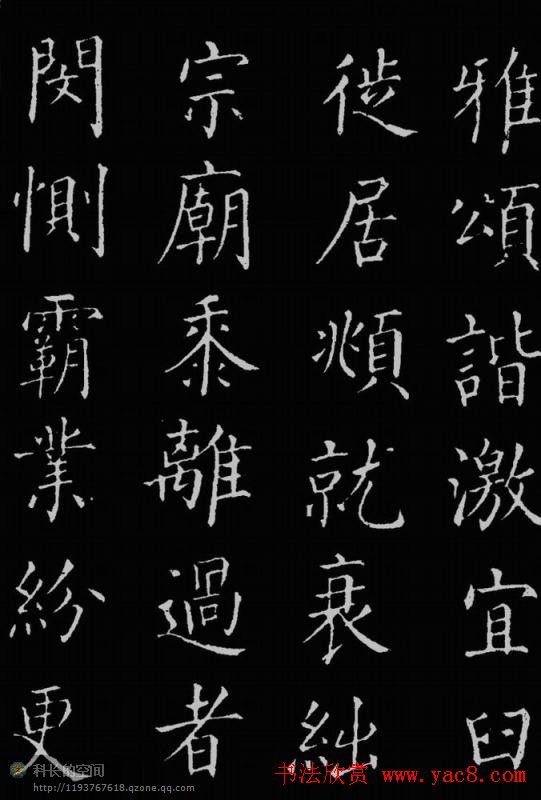 雅頌諧激宜臼
徙居頫就衰絀
宗廟黍離過者
閔惻霸業紛更
科长的空间
http://1193767618.qzone.qq.com
书法欣赏 www.yac8.com